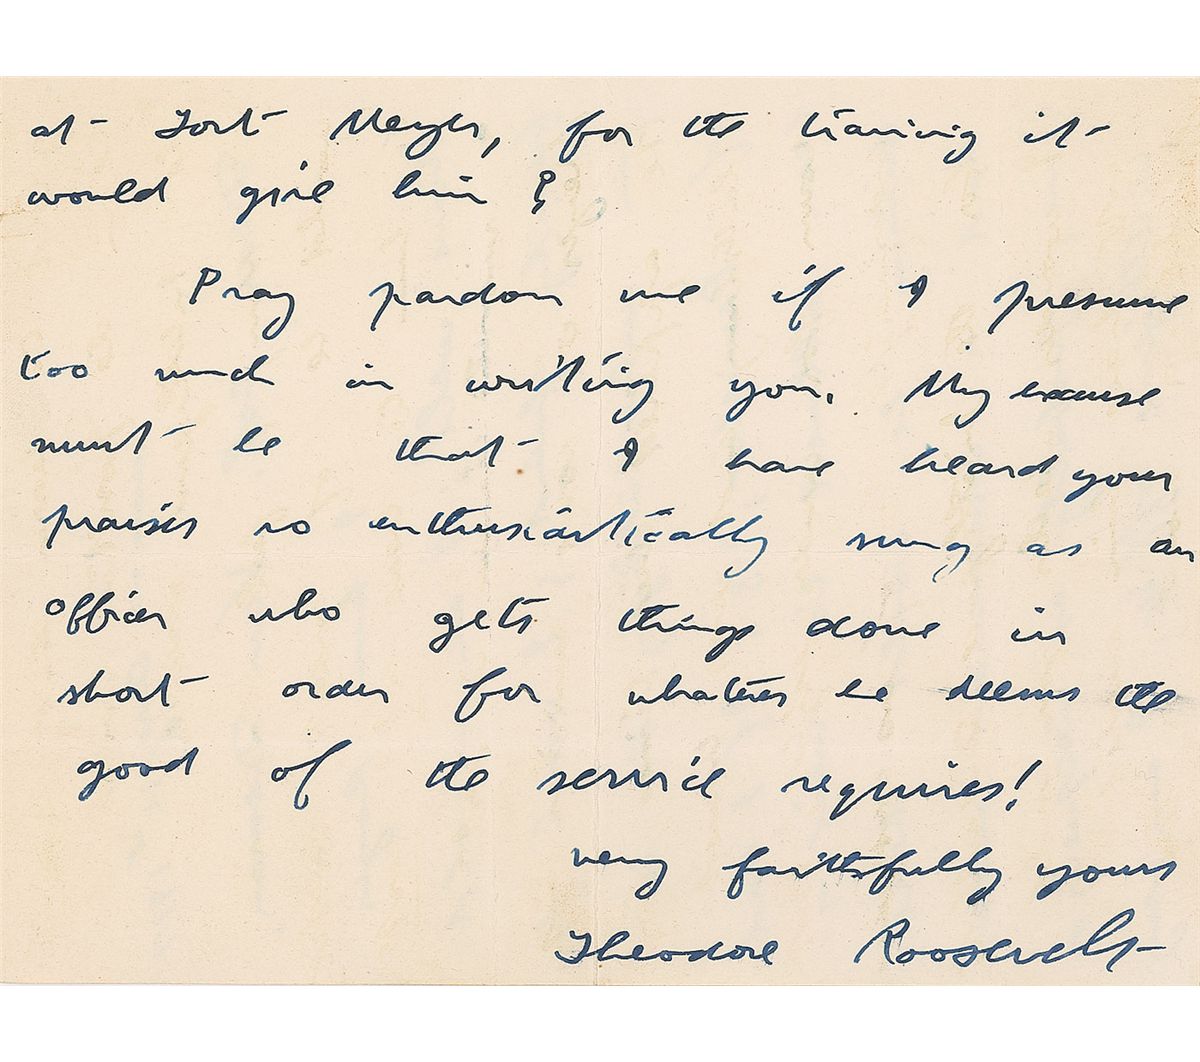 at Fort Meyer, for the training it
would give him?
Pray pardon me if I presume
too much in writing you. My excuse
must be that I have heard your
praises so enthusiastically sung as an
officer who gets things done in
short order for whatever he deems the
good of the service requires!
very faithfully yours
Theodore Roosevelt